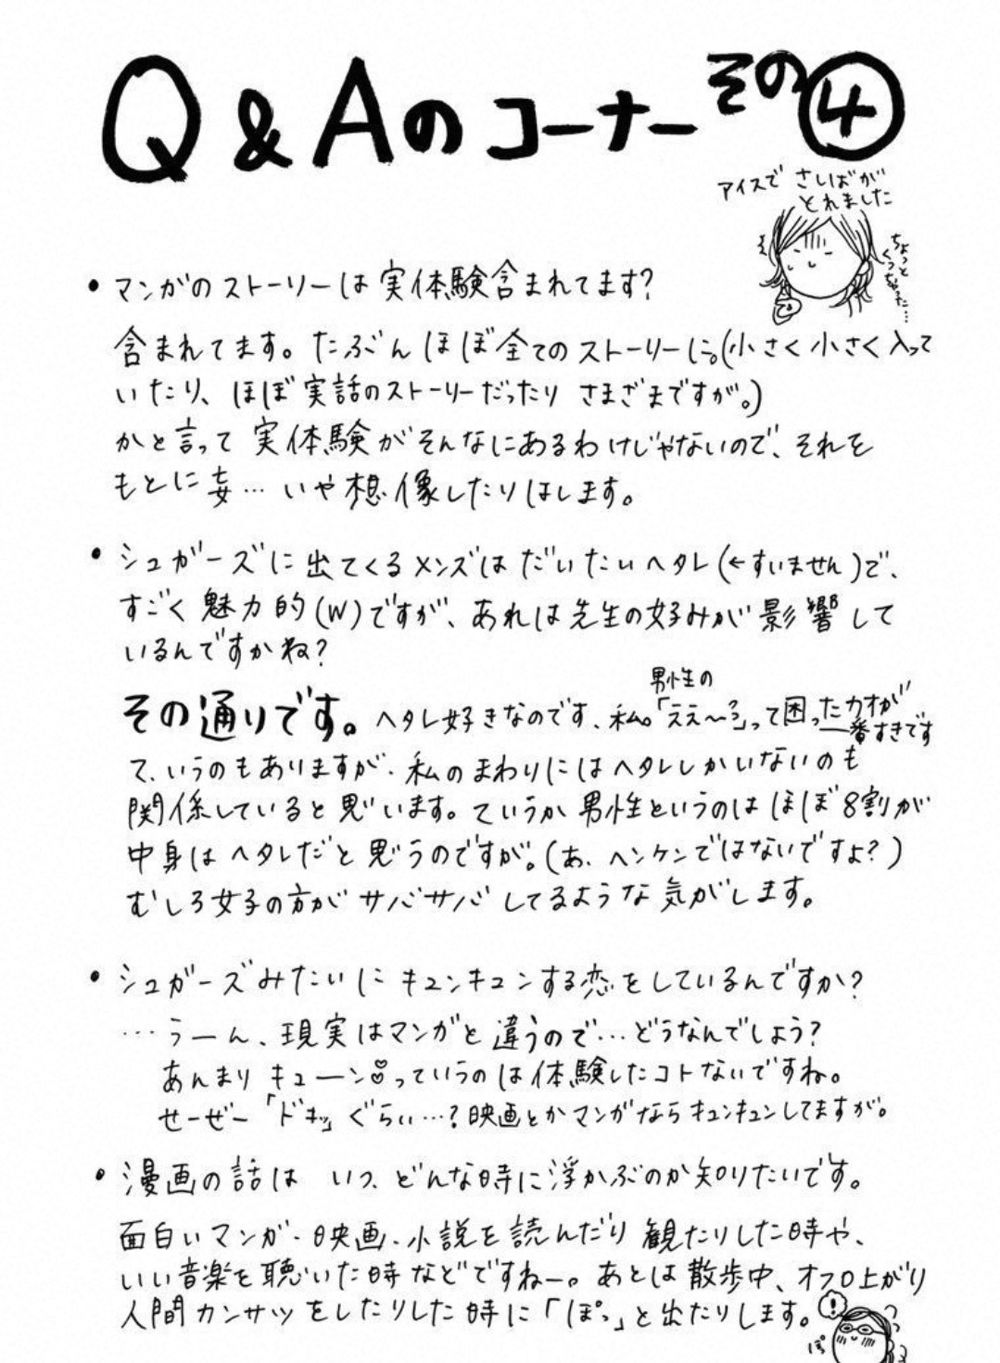 Q&Aのコーナーその④
アイスで さしばが
とれました
ちょっと
くっちゃった…
・マンガのストーリーは実体験含まれてます?
含まれてます。たぶんほぼ全てのストーリーに。(小さく小さく入って
いたり、ほぼ実話のストーリーだったり さまざまですが。)
かと言って実体験がそんなにあるわけじゃないので、それを
もとに妄…いや想像したりはします。
・シュガーズに出てくるメンズはだいたいヘタレ(←すいません)で、
すごく魅力的(W)ですが、あれは先生の好みが影響して
いるんですかね?
その通りです。ヘタレ好きなのです、私。男性の「ええ〜っ」って困ったカオが
一番すきです
て、いうのもありますが、私のまわりにはヘタレしかいないのも
関係していると思います。ていうか男性というのはほぼ8割が
中身はヘタレだと思うのですが。(あ、ヘンケンではないですよ?)
むしろ女子の方がサバサバしてるような気がします。
・シュガーズみたいにキュンキュンする恋をしているんですか?
…うーん、現実はマンガと違うので…どうなんでしょう?
あんまりキューン♡っていうのは体験したコトないですね。
せーぜー「ドキッ」ぐらい…?映画とかマンガならキュンキュンしてますが。
・漫画の話は いつ、どんな時に浮かぶのか知りたいです。
面白いマンガ、映画、小説を読んだり観たりした時や、
いい音楽を聴いた時などですねー。あとは散歩中、オフロ上がり
人間カンサツをしたりした時に「ぽっ」と出たりします。
!
ぽ